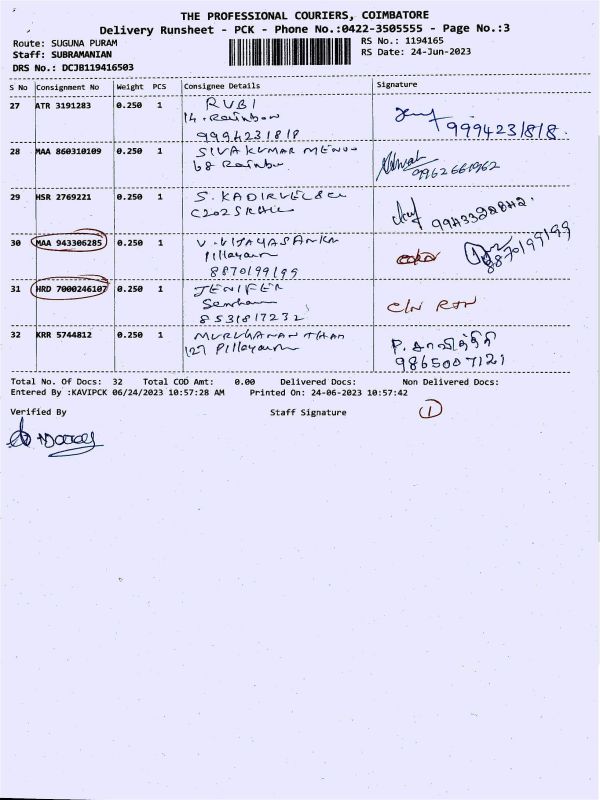 THE PROFESSIONAL COURIERS, COIMBATORE
Delivery Runsheet - PCK - Phone No.:0422-3505555 - Page No.:3
Route: SUGUNA PURAM
RS No.: 1194165
Staff: SUBRAMANIAN
RS Date: 24-Jun-2023
DRS No.: DCJB119416503
S No Consignment No Weight PCS Consignee Details Signature
27 ATR 3191283 0.250 1 RUBI
14. Rainbow
9994231818 9994231818.
28 MAA 860310109 0.250 1 SIVAKUMAR MENON
68 Rainbow 9962661962
29 HSR 2769221 0.250 1 S. KADIRVEL
C202 9943322842.
30 MAA 943306285 0.250 1 V. VIJAYASANKA
Pillayarn
8870199199 8870199199
31 HRD 7000246107 0.250 1 JENIFER
8531817232 C/N RTN
32 KRR 5744812 0.250 1 MURUGANANTHAN P.
127 Pillayarn 9865007121
Total No. Of Docs: 32 Total COD Amt: 0.00 Delivered Docs: Non Delivered Docs:
Entered By :KAVIPCK 06/24/2023 10:57:28 AM Printed On: 24-06-2023 10:57:42
Verified By Staff Signature 1